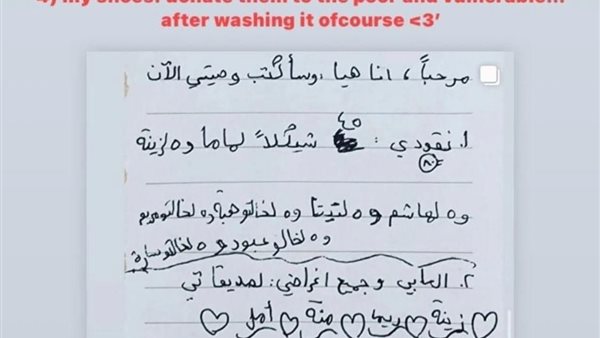 4) my shoes: donate them to the poor and vulnerable...
after washing it ofcourse <3'
مرحباً ، انا هيا وسأكتب وصيتي الآن
٤٥
١. نقودي : شيكلاً لماما و ٥ لزينة
٨٠
و ٥ لهاشم و ٥ لتيتا و ٥ لخالتو هبة و ٥ لخالتو مريم
و ٥ لخالو عبود و ٥ لخالتو سارة
٢. العابي وجميع اغراضي : لصديقاتي
زينة ريما منة أمل